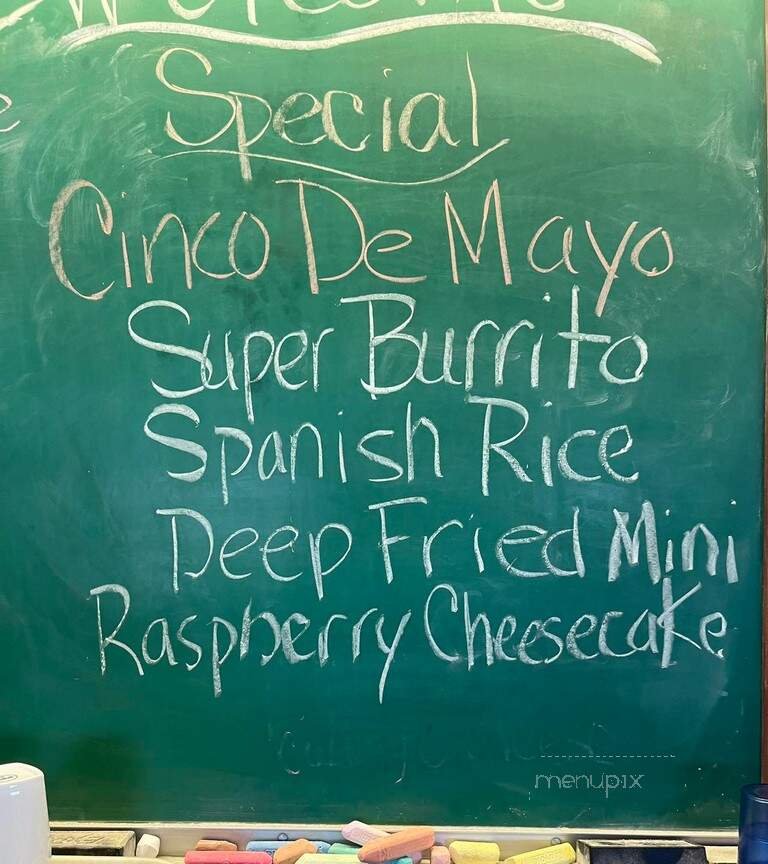 Welcome
Special
Cinco De Mayo
Super Burrito
Spanish Rice
Deep Fried Mini
Raspberry Cheesecake
menupix